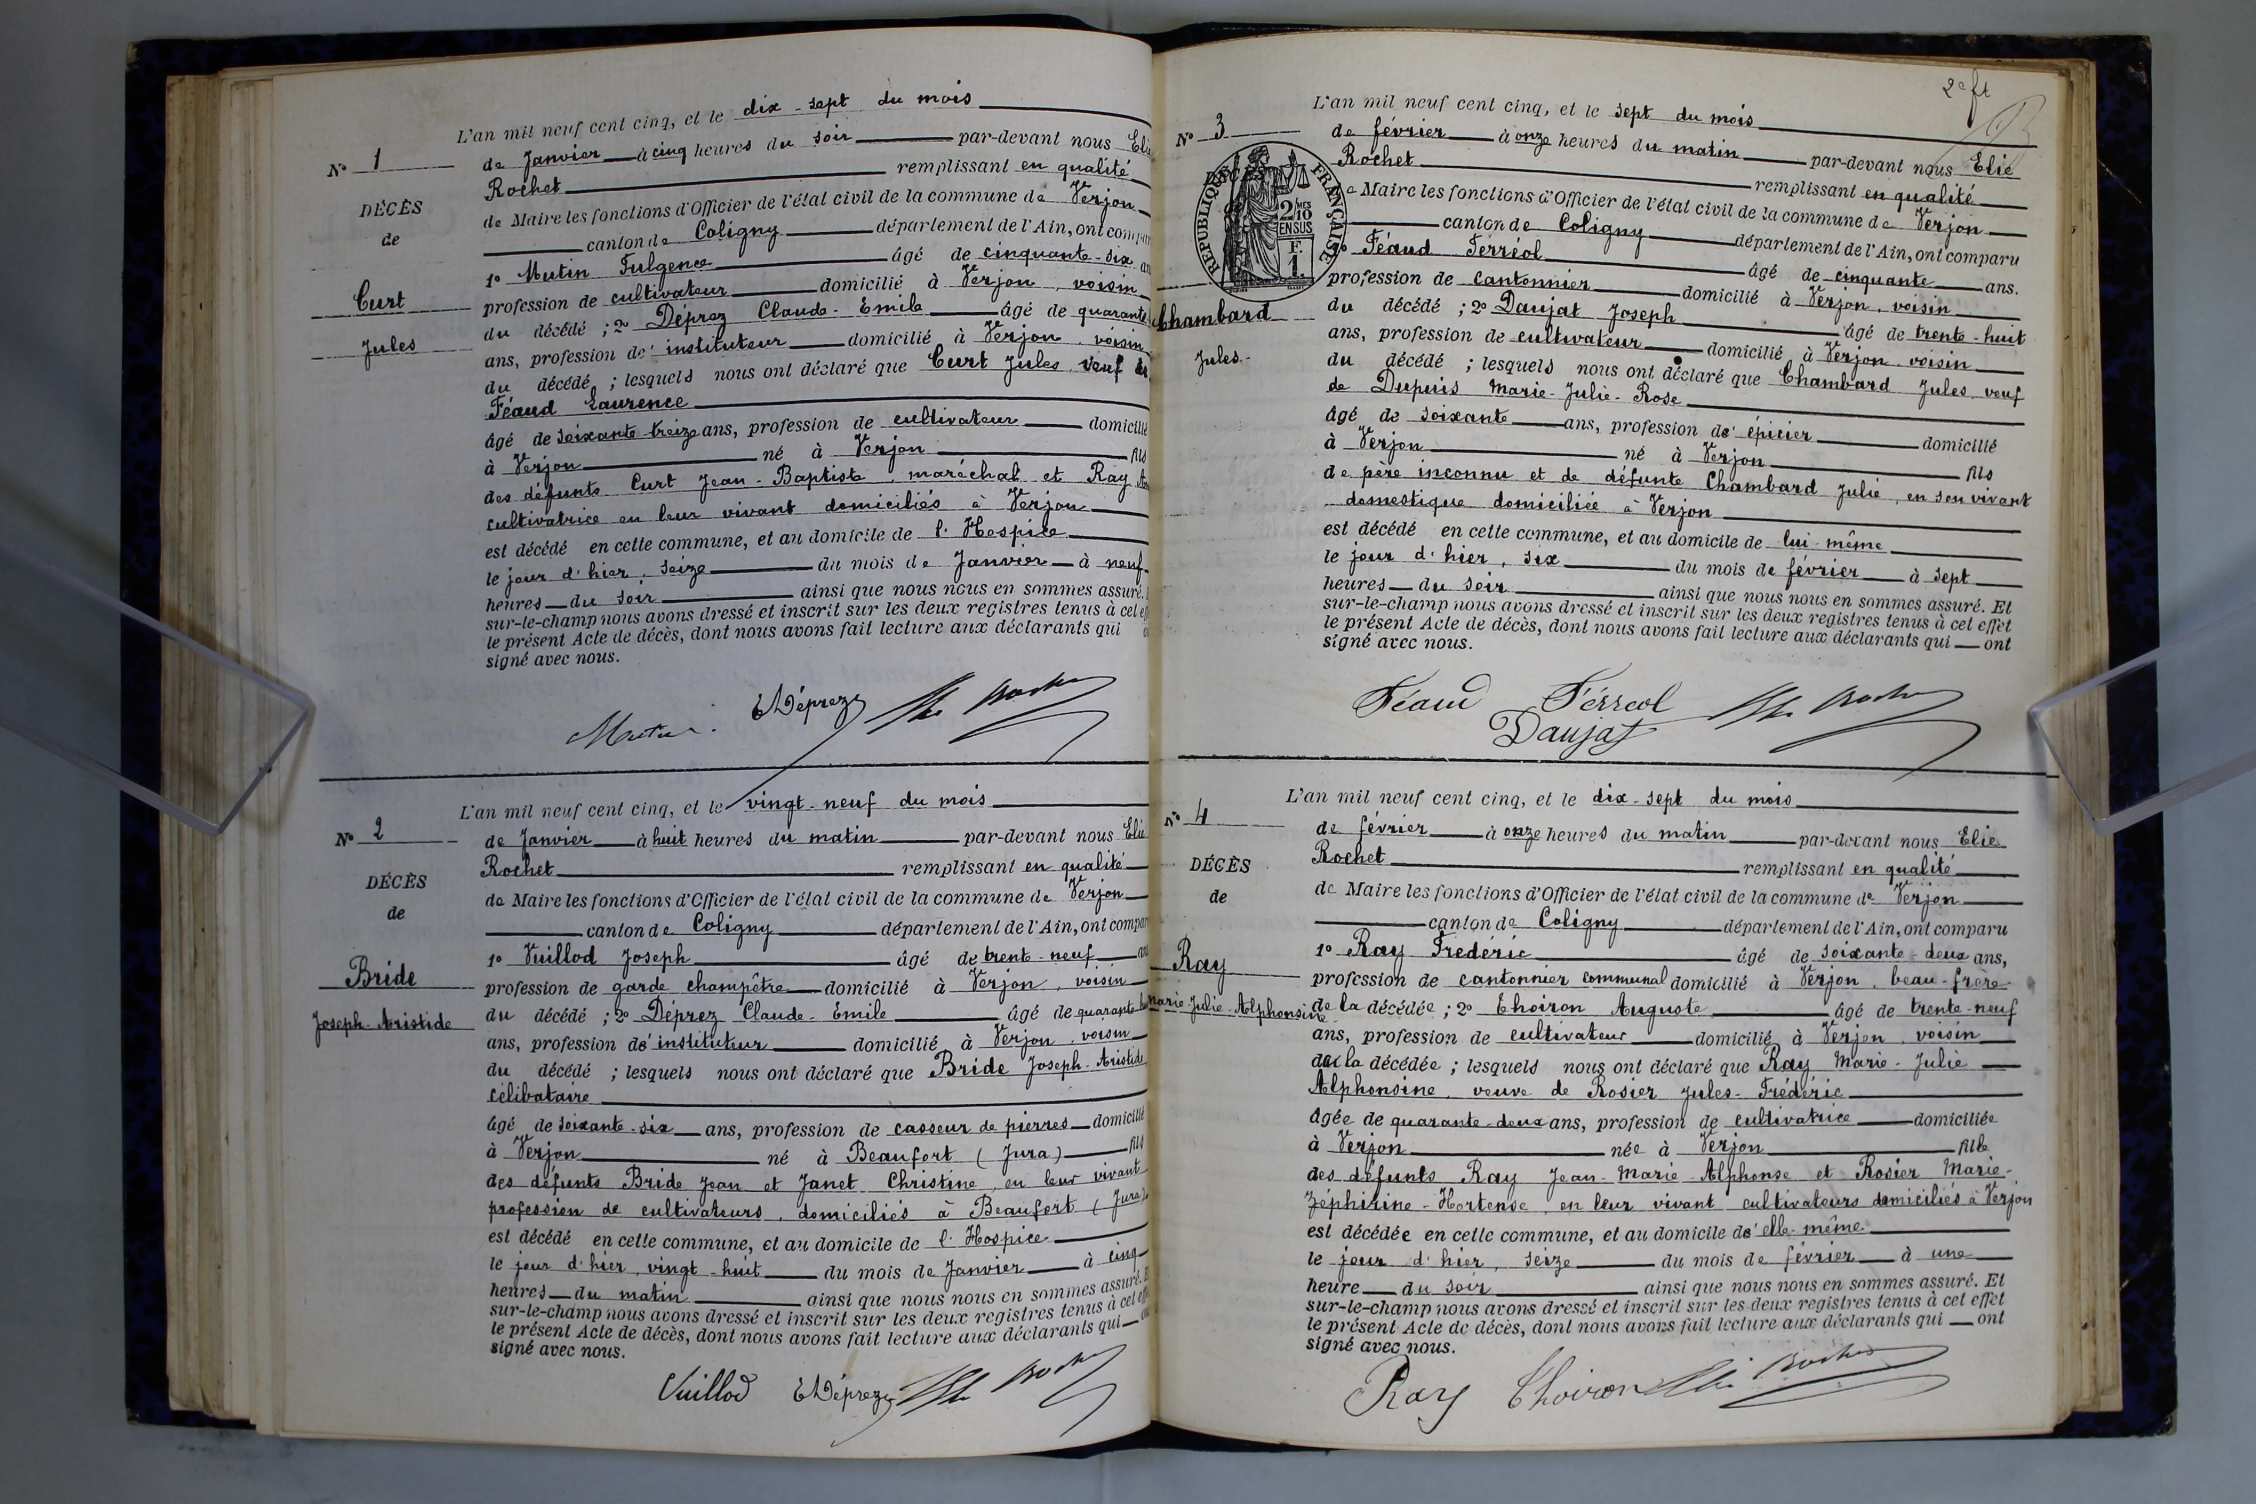 L'an mil neuf cent cinq, et le dix-sept du mois
N° 1
de Janvier à cinq heures du soir par-devant nous Elie
Rochet remplissant en qualité
DÉCÈS
de Maire les fonctions d'Officier de l'état civil de la commune de Verjon
de
canton de Coligny département de l'Ain, ont compar
1° Mutin Fulgence âgé de cinquante-six an
Curt
profession de cultivateur domicilié à Verjon, voisin
du décédé ; 2° Déprez Claude-Emile âgé de quarante
Jules
ans, profession d'instituteur domicilié à Verjon, voisin
du décédé ; lesquels nous ont déclaré que Curt Jules, veuf de
Féaud Laurence
âgé de soixante-treize ans, profession de cultivateur domicilié
à Verjon né à Verjon fils
des défunts Curt Jean-Baptiste, maréchal et Ray
cultivatrice en leur vivant domiciliés à Verjon
est décédé en cette commune, et au domicile de l'Hospice
le jour d'hier, seize du mois de Janvier à neuf
heures du soir ainsi que nous nous en sommes assuré.
sur-le-champ nous avons dressé et inscrit sur les deux registres tenus à cet eff
le présent Acte de décès, dont nous avons fait lecture aux déclarants qui
signé avec nous.
Mutin EDéprez Elie Rochet
L'an mil neuf cent cinq, et le vingt-neuf du mois
N° 2
de Janvier à huit heures du matin par-devant nous Elie
Rochet remplissant en qualité
DÉCÈS
de Maire les fonctions d'Officier de l'état civil de la commune de Verjon
de
canton de Coligny département de l'Ain, ont compar
1° Vuillod Joseph âgé de trente-neuf an
Bride
profession de garde champêtre domicilié à Verjon, voisin
Joseph-Aristide
du décédé ; 2° Déprez Claude-Emile âgé de quarante
ans, profession d'instituteur domicilié à Verjon, voisin
du décédé ; lesquels nous ont déclaré que Bride Joseph-Aristide
célibataire
âgé de soixante-six ans, profession de casseur de pierres domicilié
à Verjon né à Beaufort (Jura) fils
des défunts Bride Jean et Janet Christine, en leur vivant
profession de cultivateurs, domiciliés à Beaufort (Jura)
est décédé en cette commune, et au domicile de l'Hospice
le jour d'hier, vingt-huit du mois de Janvier à cinq
heures du matin ainsi que nous nous en sommes assuré. E
sur-le-champ nous avons dressé et inscrit sur les deux registres tenus à cet eff
le présent Acte de décès, dont nous avons fait lecture aux déclarants qui
signé avec nous.
Vuillod EDéprez Elie Rochet
2e ft
L'an mil neuf cent cinq, et le sept du mois
N° 3
de février à onze heures du matin par-devant nous Elie
Rochet remplissant en qualité
RÉPUBLIQUE FRANÇAISE
2/10 MES EN SUS
F. 1.
de Maire les fonctions d'Officier de l'état civil de la commune de Verjon
canton de Coligny département de l'Ain, ont comparu
1° Féaud Ferréol âgé de cinquante ans.
profession de cantonnier domicilié à Verjon, voisin
Chambard
du décédé ; 2° Daujat Joseph âgé de trente-huit
ans, profession de cultivateur domicilié à Verjon voisin
Jules
du décédé ; lesquels nous ont déclaré que Chambard Jules veuf
de Dupuis Marie-Julie-Rose
âgé de soixante ans, profession d'épicier domicilié
à Verjon né à Verjon fils
de père inconnu et de défunte Chambard Julie, en son vivant
domestique domiciliée à Verjon
est décédé en cette commune, et au domicile de lui-même
le jour d'hier, six du mois de février à sept
heures du soir ainsi que nous nous en sommes assuré. Et
sur-le-champ nous avons dressé et inscrit sur les deux registres tenus à cet effet
le présent Acte de décès, dont nous avons fait lecture aux déclarants qui ont
signé avec nous.
Féaud Férréol Elie Rochet
Daujat
L'an mil neuf cent cinq, et le dix-sept du mois
N° 4
de février à onze heures du matin par-devant nous Elie
Rochet remplissant en qualité
DÉCÈS
de Maire les fonctions d'Officier de l'état civil de la commune de Verjon
de
canton de Coligny département de l'Ain, ont comparu
1° Ray Frédéric âgé de soixante-deux ans,
Ray
profession de cantonnier communal domicilié à Verjon, beau-frère
Marie-Julie-Alphonsine
de la décédée ; 2° Choiron Auguste âgé de trente-neuf
ans, profession de cultivateur domicilié à Verjon voisin
de la décédée ; lesquels nous ont déclaré que Ray Marie-Julie
Alphonsine, veuve de Rosier Jules-Frédéric
âgée de quarante-deux ans, profession de cultivatrice domiciliée
à Verjon née à Verjon fille
des défunts Ray Jean-Marie-Alphonse et Rosier Marie-
Zéphirine-Hortense, en leur vivant cultivateurs domiciliés à Verjon
est décédée en cette commune, et au domicile d'elle-même
le jour d'hier, seize du mois de février à une
heure du soir ainsi que nous nous en sommes assuré. Et
sur-le-champ nous avons dressé et inscrit sur les deux registres tenus à cet effet
le présent Acte de décès, dont nous avons fait lecture aux déclarants qui ont
signé avec nous.
Ray Choiron Elie Rochet